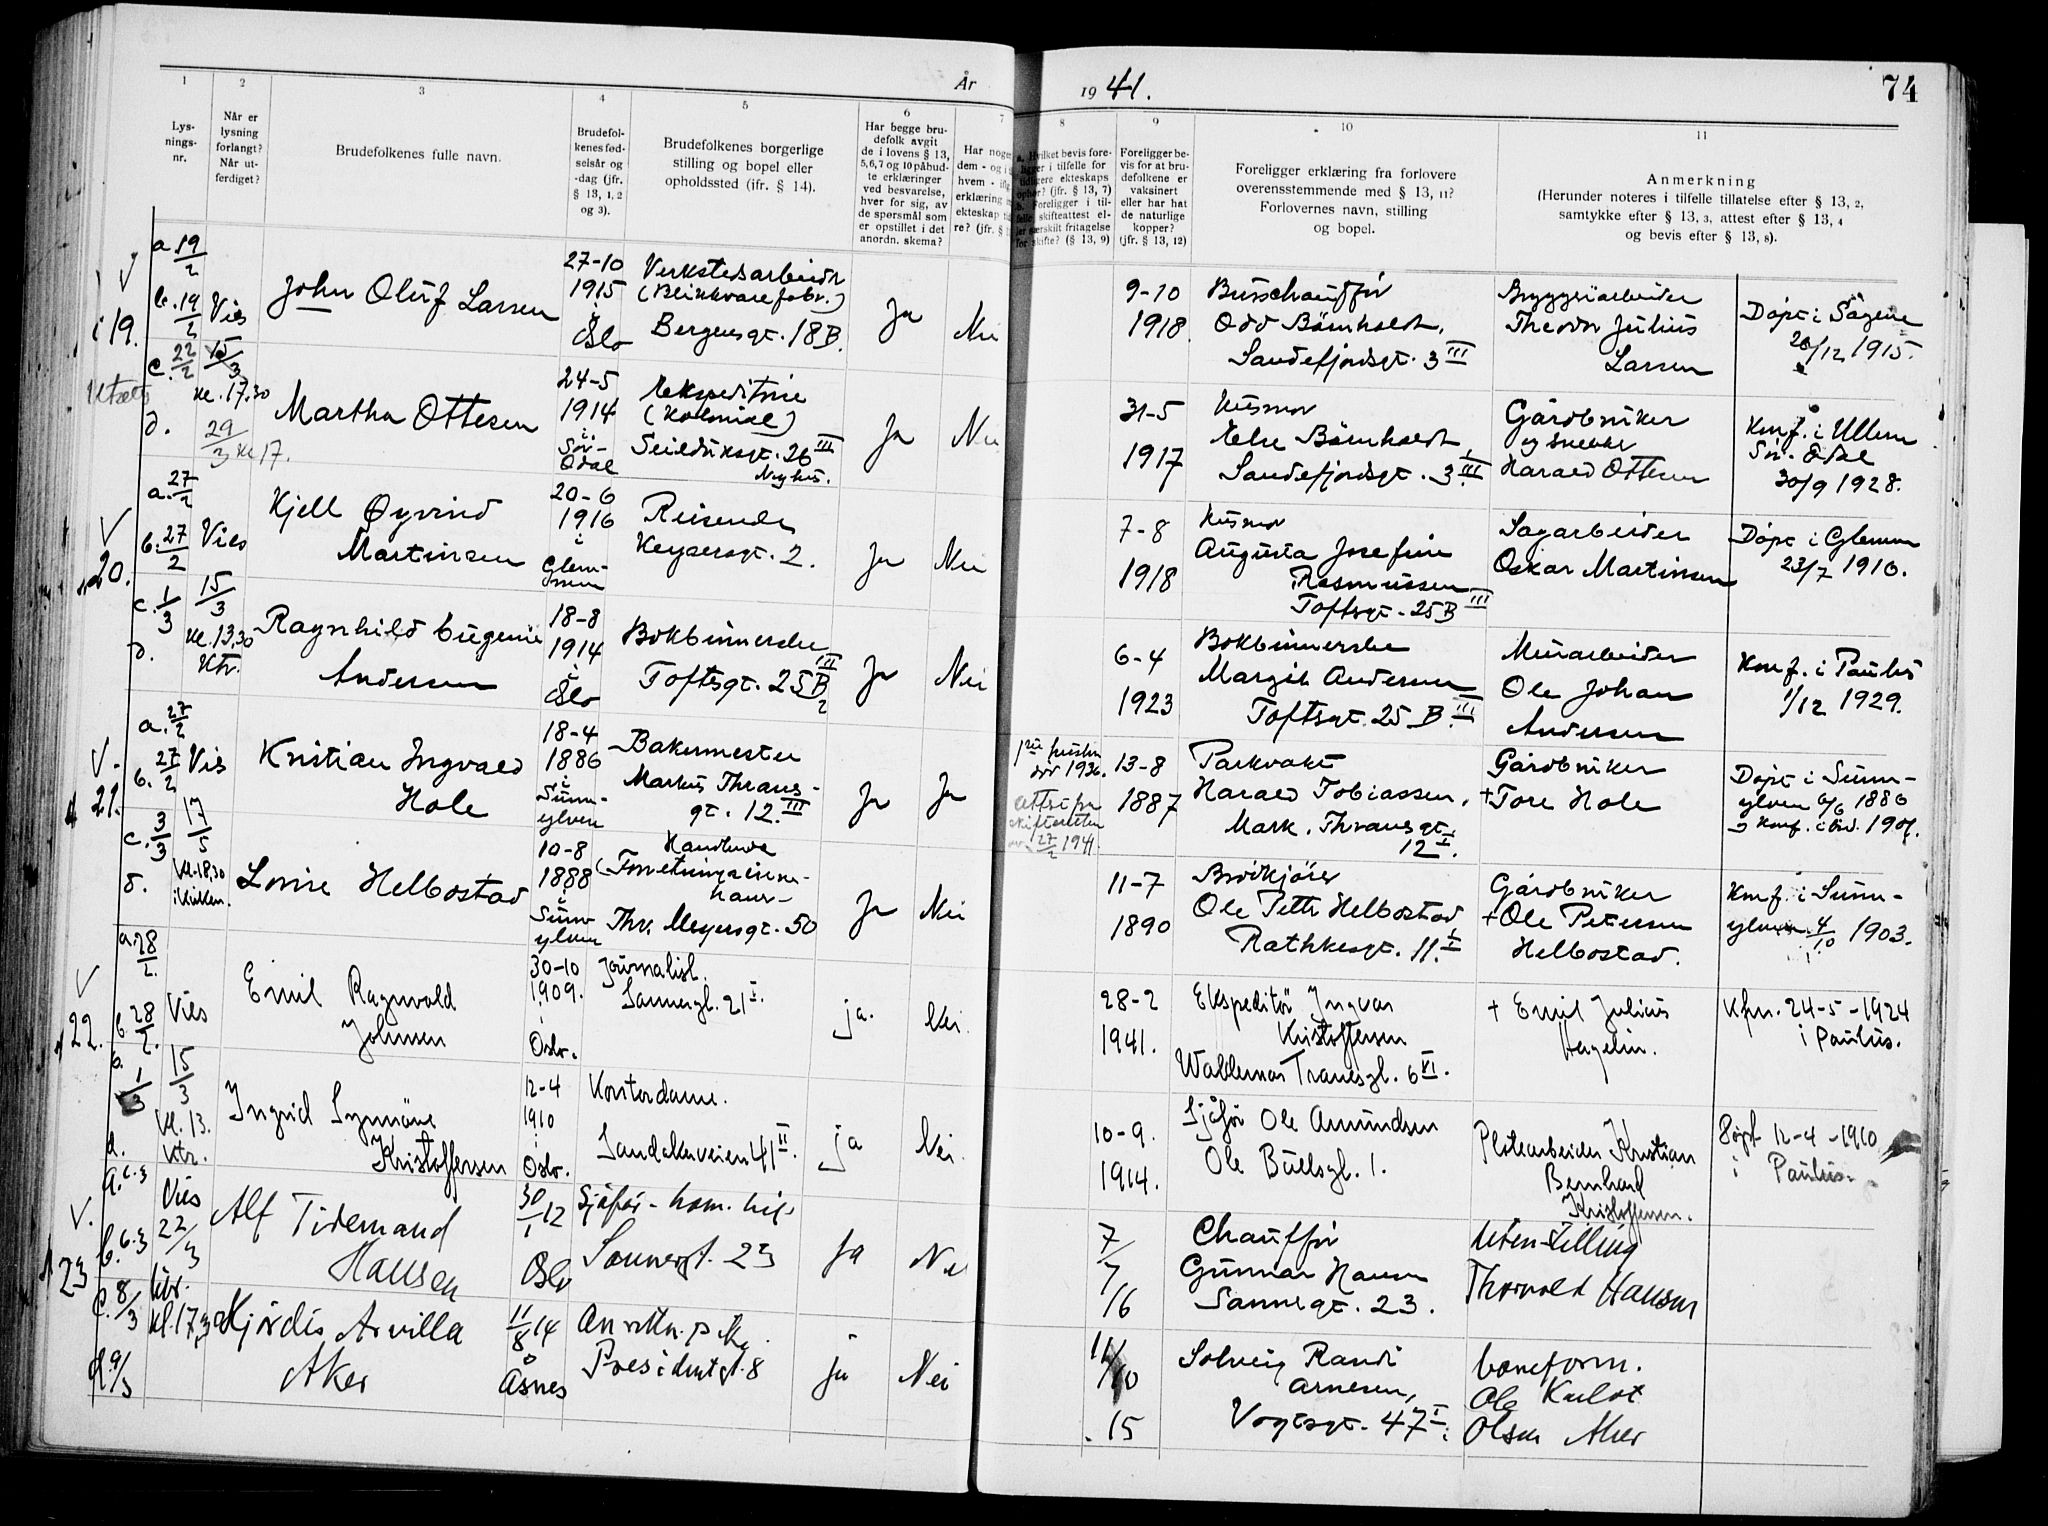 År
19 41.
74
1
Lys-
nings-
nr.
2
Når er
lysning
forlangt?
Når ut-
ferdiget?
3
Brudefolkenes fulle navn.
4
Brudefol-
kenes fød-
selsår og
-dag (jfr.
§ 13, 1, 2
og 3).
5
Brudefolkenes borgerlige
stilling og bopel eller
opholdssted (ifr. § 14).
6
Har begge bru-
defolk avgit
de i lovens § 13,
5, 6, 7 og 10 påbud-
te erklæringer
ved besvarelse,
hver for sig, av
de spørsmål som
er opstillet i det
anordn. skema?
7
Har noge
dem - og i
hvem -
erklæring
ekteskap
re? (jfr. §
8
a. Hvilket bevis fore-
ligger i tilfelle for
tidligere ekteskaps
ophør? (jfr. § 13, 7)
b. Foreligger i til-
felle skifteattest el-
ler særskilt fritagelse
for skifte? (§ 13, 9)
9
Foreligger be-
vis for at bru-
defolkene er
vaksinert
eller har hat
de naturlige
kopper?
(jfr. § 13, 12)
10
Foreligger erklæring fra forlovere
overensstemmende med § 13, 11?
Forlovernes navn, stilling
og bopel.
11
Anmerkning
(Herunder noteres i tilfelle tillatelse efter § 13, 2,
samtykke efter § 13, 3, attest efter § 13, 4
og bevis efter § 13, 8).
19.
a. 19/2
b. 19/2 Vies
c. 22/2 15/3
kl. 17,30
d. 29/3 kl 17.
John Oluf Larsen
27-10
1915
i
Oslo
Verkstedsarbeider
(Blikkvarefabr.)
Bergensgt. 18 B.
Ja
Nei
9-10
1918
Busschauffør
Odd Børnholdt,
Sandefjordsgt. 3 III
Bryggeriarbeider
Theodor Julius
Larsen
Døpt i Sagene
26/12 1915.
Martha Ottesen
24-5
1914
i
Sør-
Odal
Ekspeditrise
(Kolonial)
Seilduksgt. 26 III
Ja
Nei
31-5
1917
Husmor
Else Børnholdt,
Sandefjordsgt. 3 III
Gårdbruker
og snekker
Harald Ottesen
Konf. i Ullern
Sør-Odal
30/9 1928.
20.
a. 27/2
b. 27/2 Vies
c. 1/3 15/3
kl. 13,30
d. Ktr.
Kjell Øyvind
Martinsen
20-6
1916
i
Glem-
men
Reisende
Keysersgt. 2.
Ja
Nei
7-8
1918
Husmor
Augusta Josefine
Rasmussen
Toftesgt. 25 B III
Sagarbeider
Oskar Martinsen
Døpt i Glemmen
23/7 1916.
Ragnhild Eugenie
Andersen
18-8
1914
i
Oslo
Bokbinnerske
Toftesgt. 25 B III
Ja
Nei
6-4
1923
Bokbinnerske
Margit Andersen
Toftesgt. 25 B. III
Murarbeider
Ole Johan
Andersen
Konf. i Paulus
1/12 1929.
21.
a. 27/2
b. 27/2 Vies
c. 3/3 17/5
d. Kl. 18,30
i kirken.
Kristian Ingvald
Hole
18-4
1886
i
Sunn-
ylven
Bakermester
Markus Thranes-
gt. 12. III
Ja
Ja
død 1936.
Attest fra
skifteretten
27/2 1941.
13-8
1887
Parkvakt
Harald Tobiassen,
Mark. Thranesgt.
12 I.
Gårdbruker
+ Tore Hole
Døpt i Sunn-
ylven 6/6 1886
Lovise Helbostad
10-8
1888
i
Sunn-
ylven
Handlende
Thv. Meyersgt. 50
Ja
Nei
11-7
1890
Brødkjører
Ole Petter Helbostad,
Rathkesgt. 11. I
Gårdbruker
+ Ole Petersen
Helbostad.
Konf. i Sunn-
ylven 4/10 1903.
22.
a. 28/2.
b. 28/2. Vies
c. 1/3 15/3
Kl. 13.
d. Ktr.
Emil Ragnvald
Johnsen
30-10
1909.
i
Oslo.
Journalist.
Sannergt. 21 I.
ja.
Nei.
28-2
1941.
Ekspeditør Ingvar
Kristoffersen
Waldemar Thranesgt. 6 VI.
+ Emil Julius
Hagelin.
Kfm. 24-5-1924
i Paulus.
Ingrid Synnøve
Kristoffersen
12-4
1910
i
Oslo.
Kontordame.
Sandakerveien 41 II.
ja
Nei.
10-9.
1914.
Sjåfør Ole Amundsen
Ole Bullsgt. 1.
Platearbeider Kristian
Bernhard
Kristoffersen.
Døpt 12-4-1910
i Paulus.
23
a. 6-3 Vies
b. 6-3 22/3
c. 8/3 ktr.
kl. 17,30
d. 9/3
Alf Tidemand
Hansen
30/1 12
Oslo
Sjåfør
Sannergt. 23
Ja
Nei
7/7
16
Chauffør
Gunnar Hansen
Sannergt. 23.
Uten stilling
Thorvald Hansen
Hjørdis Arvilla
Aker
11/8 14
Åsnes
Presidentgt. 8
ja
Nei
15
Solveig Randi
Arnesen,
Vogtsgt. 47 I.
baneform.
Ole
Olsen Aker